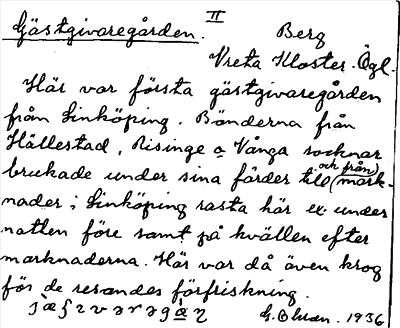 II
Gästgivaregården. Berg
Vreta Kloster. Ögl.
Här var första gästgivaregården
från Linköping. Bönderna från
Hällestad, Risinge o Vånga socknar
brukade under sina färder till (och från) mark-
nader i Linköping rasta här ex. under
natten före samt på kvällen efter
marknaderna. Här var då även krog
för de resandes förfriskning.
G. Ohsan. 1936